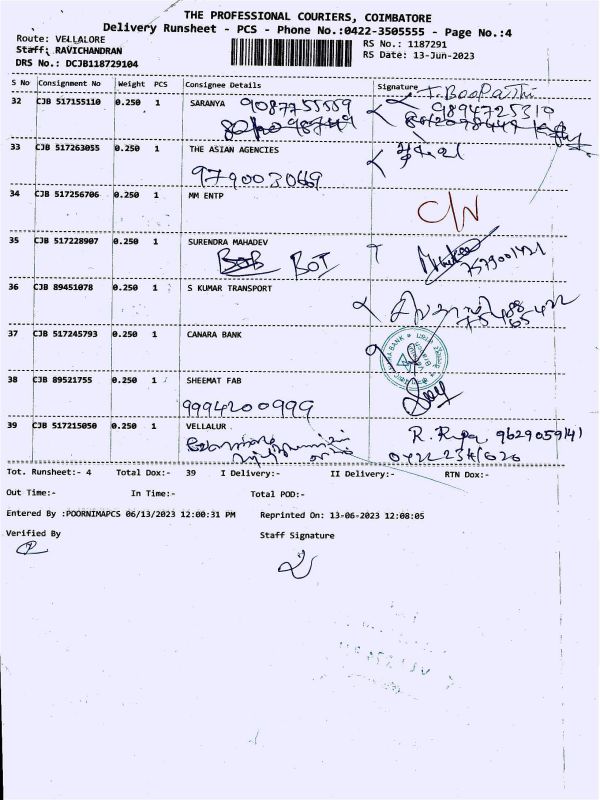 THE PROFESSIONAL COURIERS, COIMBATORE
Delivery Runsheet - PCS - Phone No.:0422-3505555 - Page No.:4
Route: VELLALORE RS No.: 1187291
Staff: RAVICHANDRAN RS Date: 13-Jun-2023
DRS No.: DCJB118729104
S No Consignment No Weight PCS Consignee Details Signature
32 CJB 517155110 0.250 1 SARANYA 9087755559 T. Boopathi
9894725310
33 CJB 517263055 0.250 1 THE ASIAN AGENCIES
9790030669
34 CJB 517256706 0.250 1 MM ENTP C/N
35 CJB 517228907 0.250 1 SURENDRA MAHADEV
BOB BOI 7579001421
36 CJB 89451078 0.250 1 S KUMAR TRANSPORT
37 CJB 517245793 0.250 1 CANARA BANK
38 CJB 89521755 0.250 1 SHEEMAT FAB
9994200999
39 CJB 517215050 0.250 1 VELLALUR R. Rupa 9629059141
Tot. Runsheet:- 4 Total Dox:- 39 I Delivery:- II Delivery:- RTN Dox:-
Out Time:- In Time:- Total POD:-
Entered By :POORNIMAPCS 06/13/2023 12:00:31 PM Reprinted On: 13-06-2023 12:08:05
Verified By Staff Signature